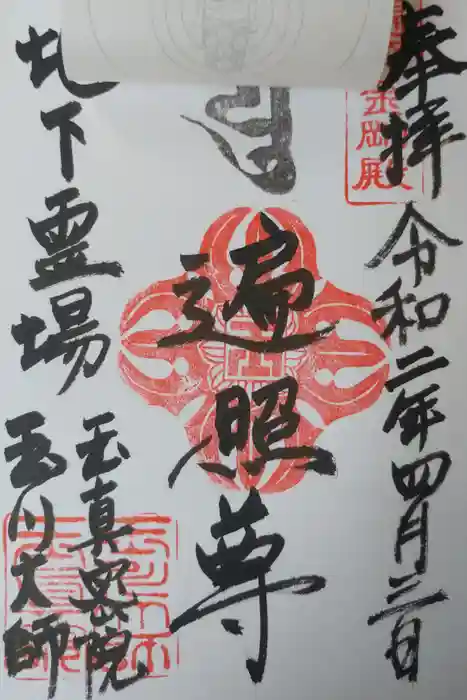 奉拝 令和二年四月三日
遍照尊
地下霊場
玉真密院
玉川大師